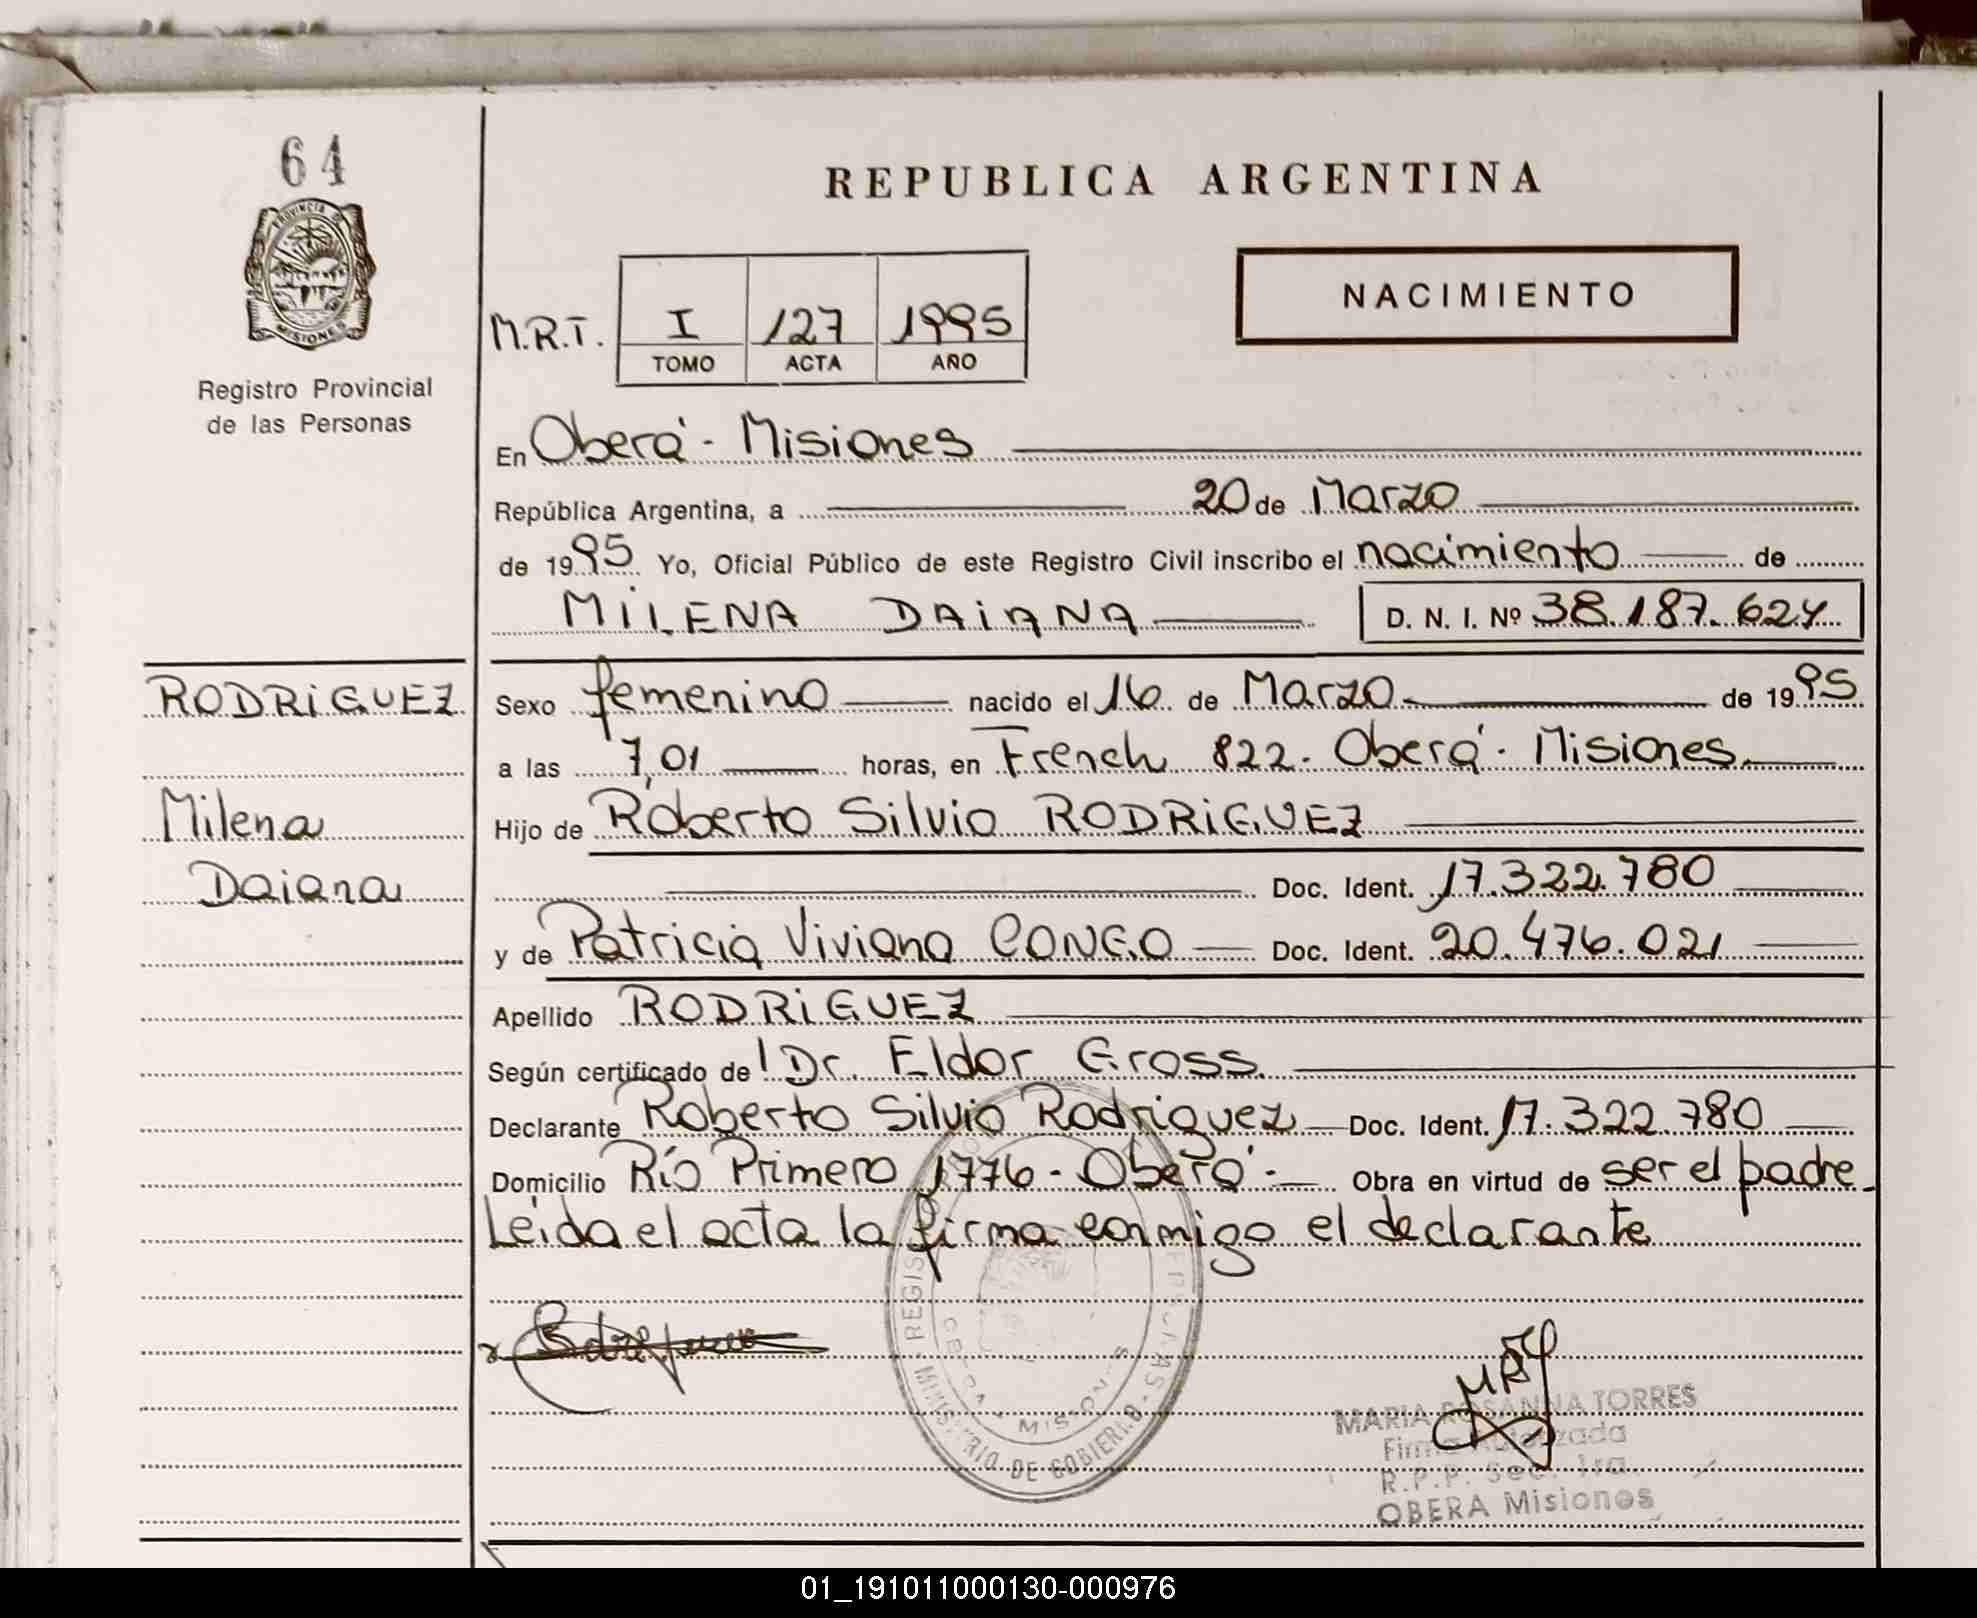 64
PROVINCIA DE
MISIONES
Registro Provincial
de las Personas
REPUBLICA ARGENTINA
NACIMIENTO
M.R.T. I 127 1995
TOMO ACTA AÑO
En Oberá - Misiones
República Argentina, a 20 de Marzo
de 1995 Yo, Oficial Público de este Registro Civil inscribo el nacimiento de
MILENA DAIANA D. N. I. Nº 38.187.624
RODRIGUEZ
Milena
Daiana
Sexo femenino nacido el 16 de Marzo de 1995
a las 7,01 horas, en French 822 - Oberá - Misiones
Hijo de Roberto Silvio RODRIGUEZ
Doc. Ident. 17.322.780
y de Patricia Viviana CONGO Doc. Ident. 20.476.021
Apellido RODRIGUEZ
Según certificado de Dr. Eldor Gross
Declarante Roberto Silvio Rodriguez Doc. Ident. 17.322.780
Domicilio Río Primero 1776 - Oberá - Obra en virtud de ser el padre
Leida el acta la firma conmigo el declarante
MINISTERIO DE GOBIERNO
MISIONES
MARIA ROSANNA TORRES
Firma Autorizada
R.P.P. Sec. 1ra.
OBERA Misiones
01_191011000130-000976